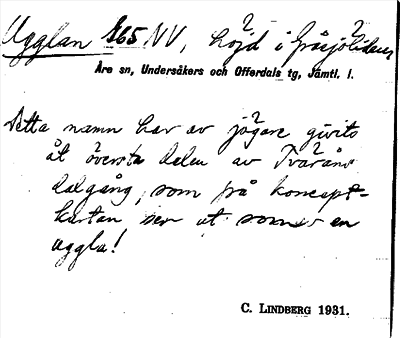 Ugglan 865 NV, höjd i Gråsjölidens
Åre sn, Undersåkers och Offerdals tg, Jämtl. l.
Detta namn har av jägare givits
åt översta delen av Tvåråns
dalgång, som på koncept-
kartan ser ut som en
uggla!
C. LINDBERG 1931.